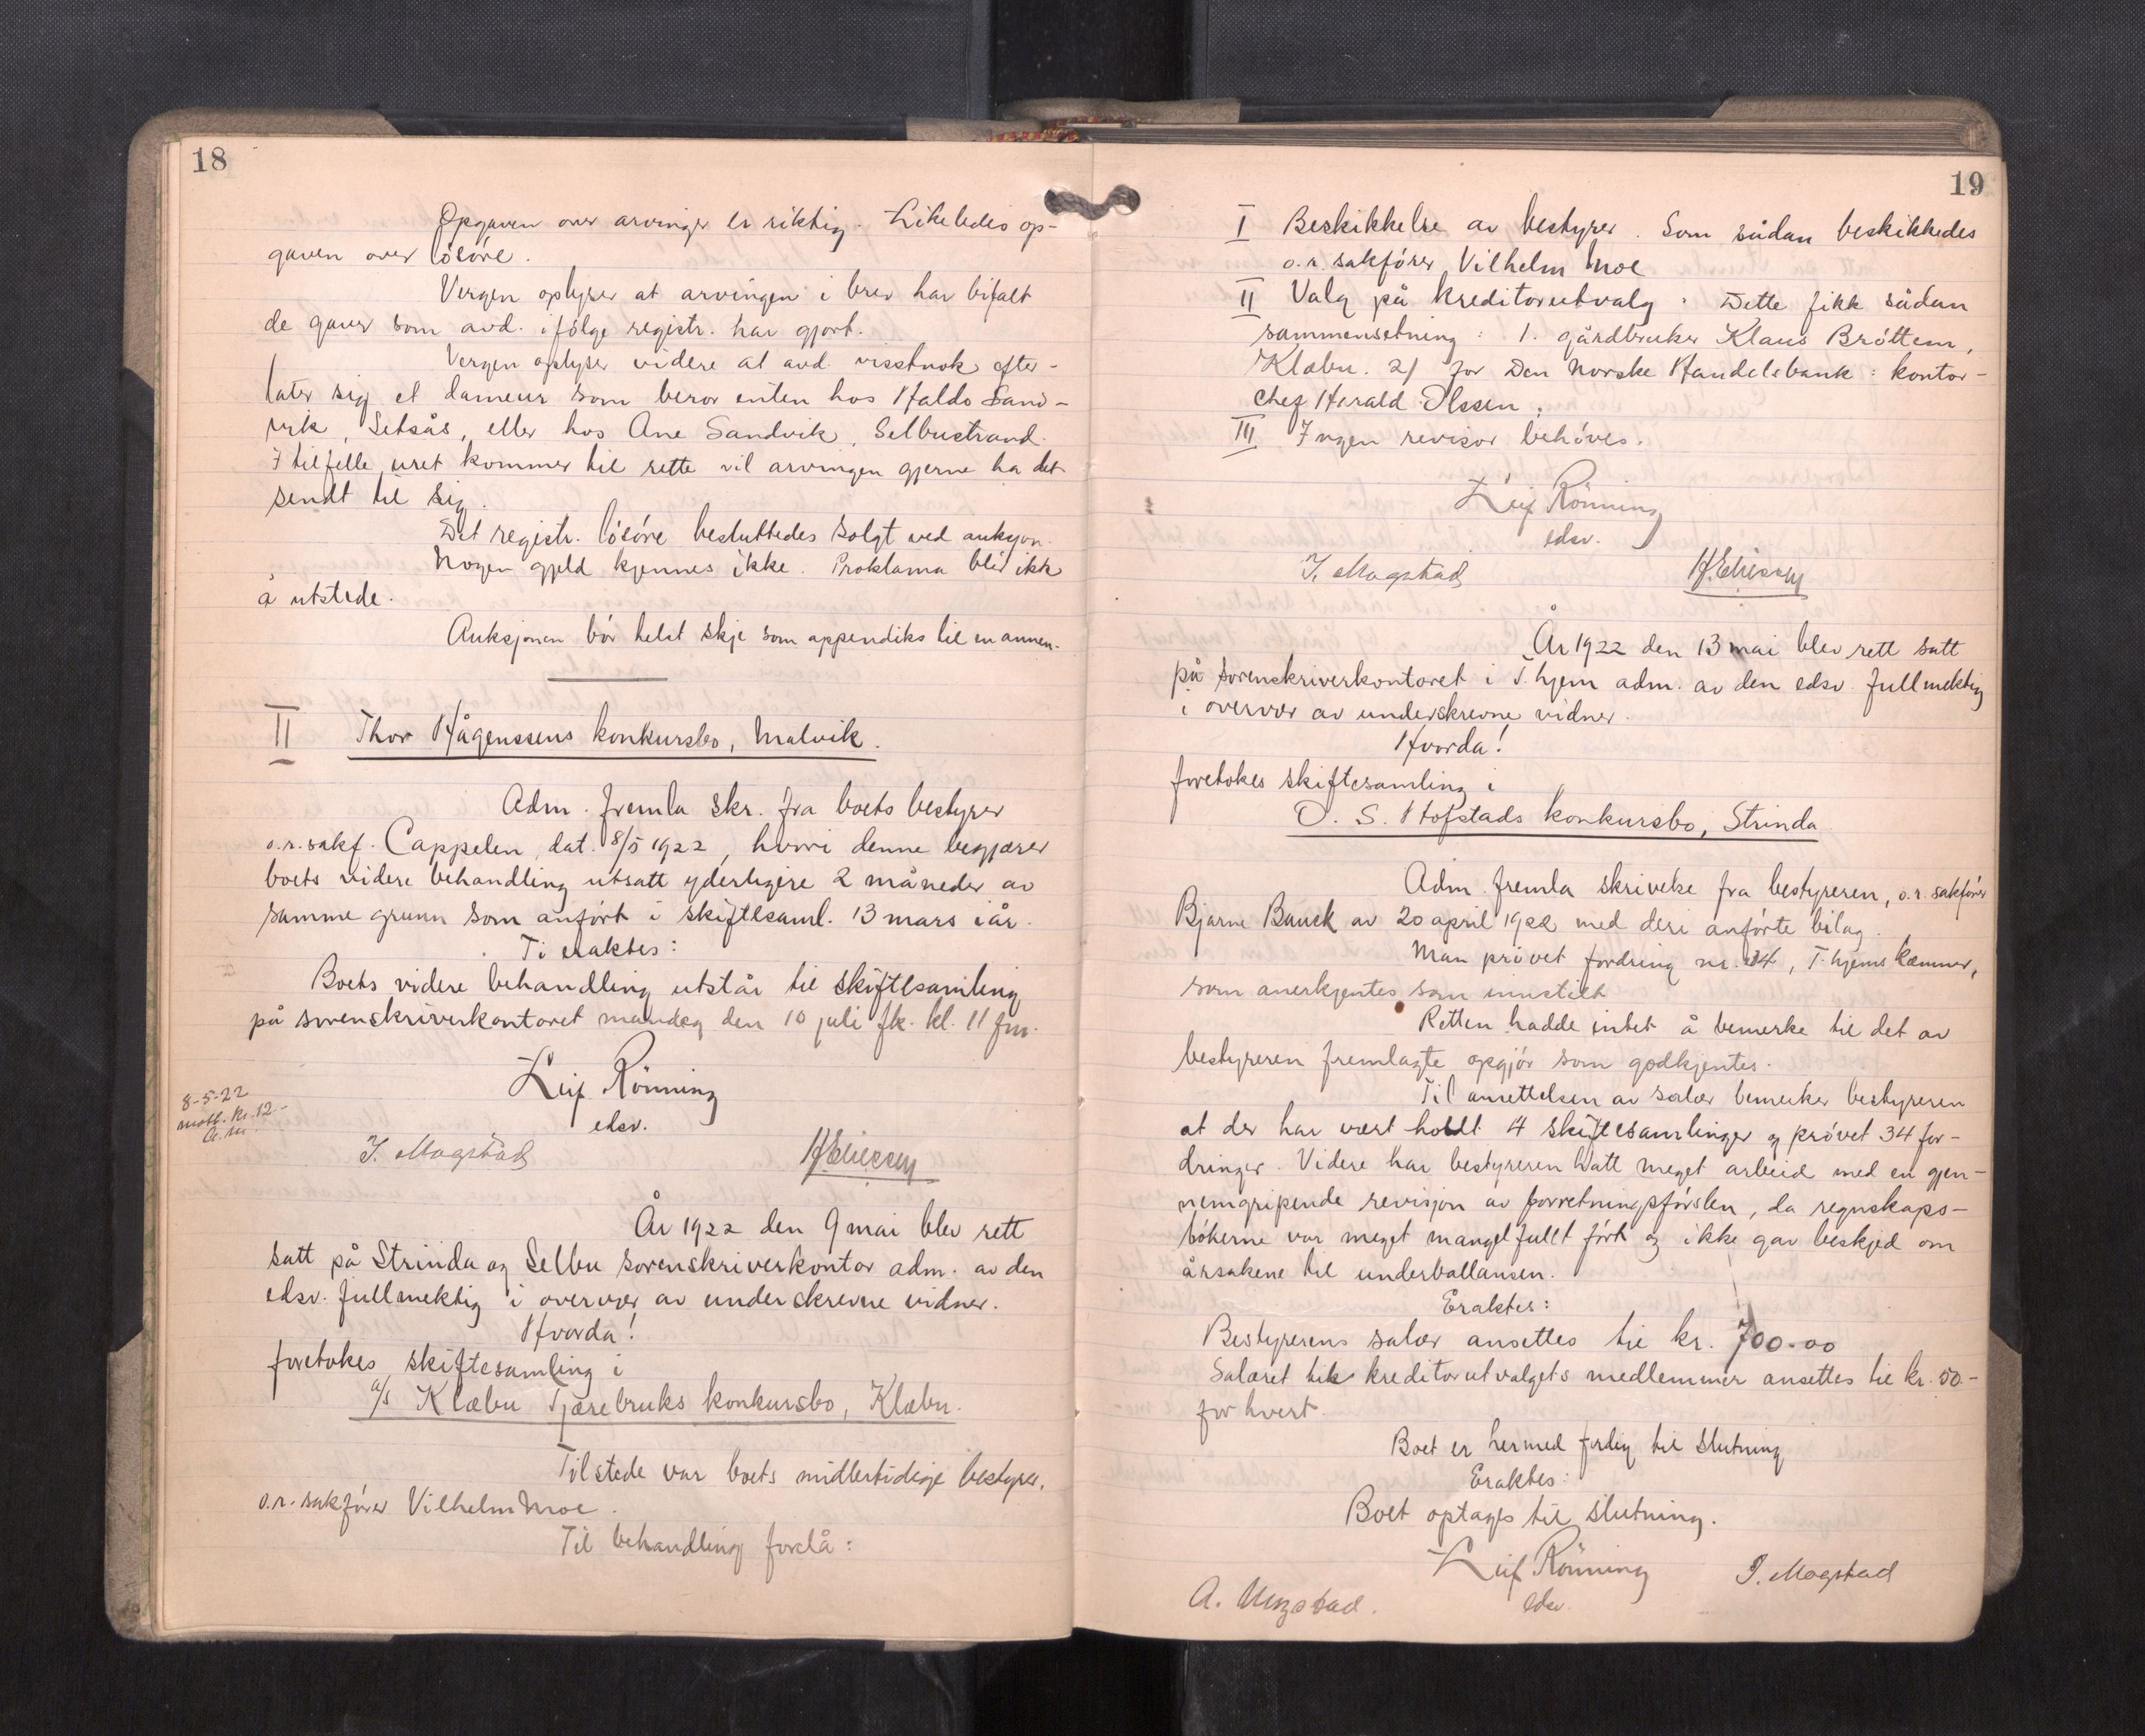 18
Opgaven over arvinger er riktig. Likeledes op-
gaven over lösöre.
Vergen oplyser at arvingen i brev har bifalt
de gaver som avd. ifölge registr. har gjort.
Vergen oplyser videre at avd. visstnok efter-
later sig et dameur som beror enten hos Haldo Sand-
vik, Setsås, eller hos Ane Sandvik, Selbustrand.
I tilfelle uret kommer til rette vil arvingen gjerne ha det
sendt til sig.
Det registr. lösöre besluttedes solgt ved auksjon.
Nogen gjeld kjennes ikke. Proklama blir ikke
å utstede.
Auksjonen bör helst skje som appendiks til en annen.
II Thor Hågenssens konkursbo, Malvik.
Adm. fremla skr. fra boets bestyrer
o.r.sakf. Cappelen, dat. 8/5 1922, hvori denne begjærer
boets videre behandling utsatt yderligere 2 måneder av
samme grunn som anfört i skiftesaml. 13 mars iår.
Ti eraktes:
Boets videre behandling utstår til skiftesamling
på sorenskriverkontoret mandag den 10 juli fk. kl. 11 fm.
Leif Rönning
edsv.
8-5-22
mott. kr. 12-
J. Mogstad H. Eliessen
År 1922 den 9 mai blev rett
satt på Strinda og Selbu sorenskriverkontor adm. av den
edsv. fullmektig i overvær av underskrevne vidner.
Hvorda!
foretokes skiftesamling i
a/s Klæbu Tjærebruks konkursbo, Klæbu.
Tilstede var boets midlertidige bestyrer,
o.r. sakförer Vilhelm Moe.
Til behandling forelå:
19
I Beskikkelse av bestyrer. Som sådan beskikkedes
o.r. sakförer Vilhelm Moe
II Valg på kreditorutvalg: Dette fikk sådan
sammensetning: 1. gårdbruker Klaus Bröttem,
Klæbu. 2) for Den Norske Handelsbank: kontor-
chef Harald Olssen.
III Ingen revisor behöves.
Leif Rönning
edsv.
J. Mogstad H. Eliessen
År 1922 den 13 mai blev rett satt
på sorenskriverkontoret i T.hjem adm. av den edsv. fullmektig
i overvær av underskrevne vidner.
Hvorda!
foretokes skiftesamling i
O. S. Hofstads konkursbo, Strinda
Adm. fremla skrivelse fra bestyreren, o.r. sakförer
Bjarne Bauck av 20 april 1922 med deri anförte bilag.
Man prövet fordring nr. 34, T.hjems kæmner,
som anerkjentes som innstilt
Retten hadde intet å bemerke til det av
bestyreren fremlagte opgjör som godkjentes.
Til ansettelsen av salær bemerker bestyreren
at der har vært holdt 4 skiftesamlinger og prövet 34 for-
dringer. Videre har bestyreren hatt meget arbeid med en gjen-
nemgripende revisjon av forretningsförslen, da regnskaps-
bökerne var meget mangelfullt fört og ikke gav beskjed om
årsakene til underballansen.
Eraktes:
Bestyrerens salær ansettes til kr. 700.00
Salæret til kreditorutvalgets medlemmer ansettes til kr. 50.-
for hvert.
Boet er hermed ferdig til slutning
Eraktes:
Boet optages til slutning.
Leif Rönning J. Mogstad
A. Mogstad. edsv.